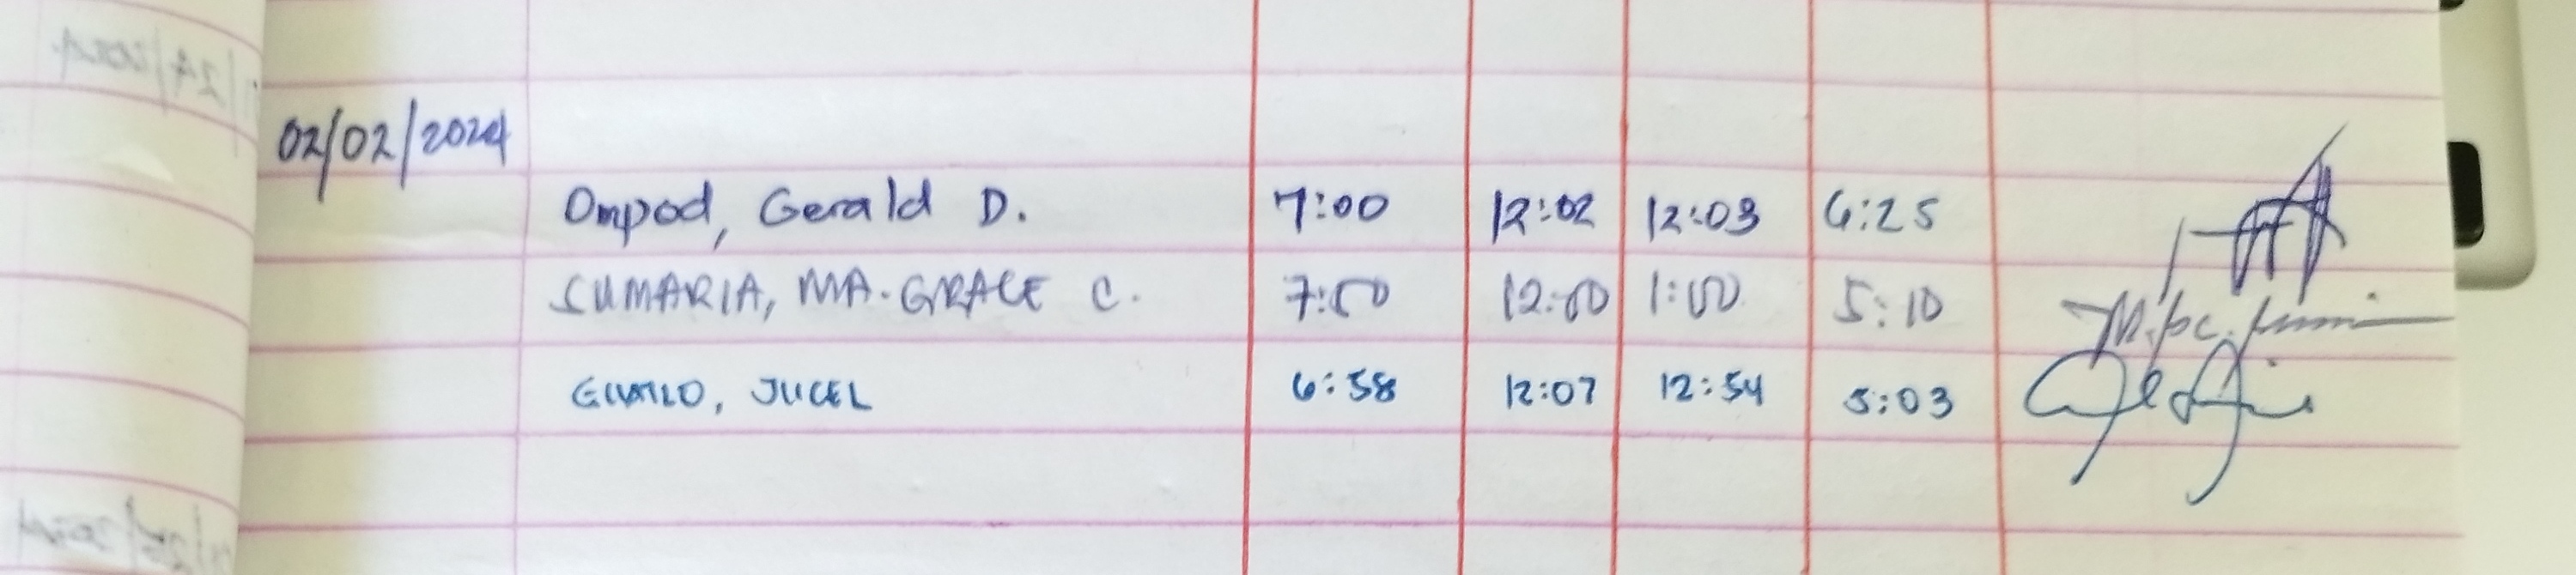 02/02/2024
Ompod, Gerald D. 7:00 12:02 12:03 6:25
SUMARIA, MA. GRACE C. 7:50 12:00 1:00 5:10
JUCEL 6:58 12:07 12:54 5:03